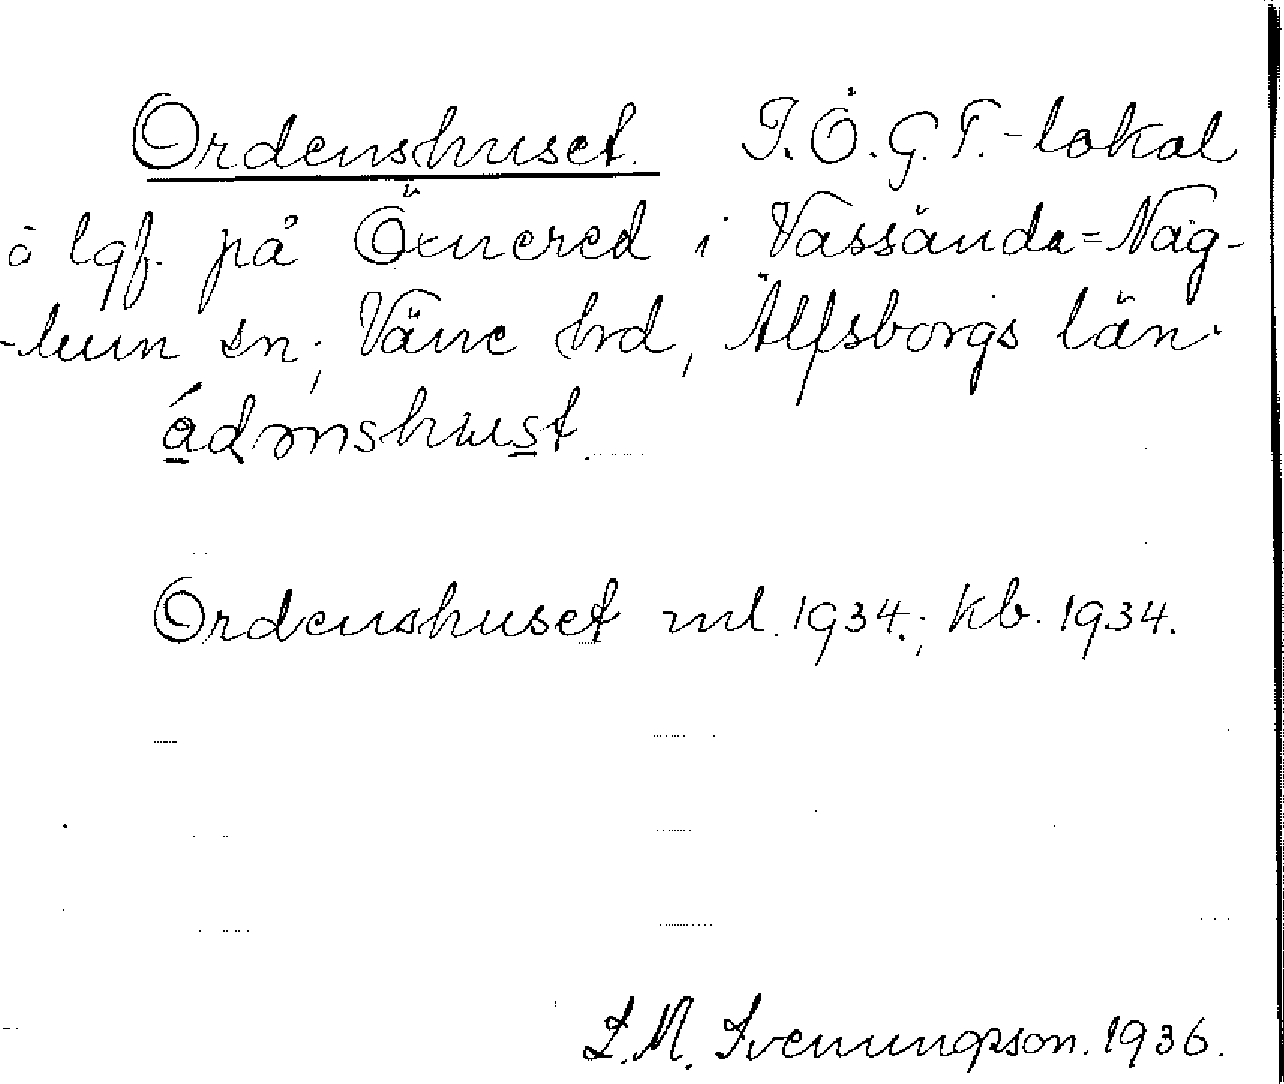 Ordenshuset. I.O.G.T.-lokal
å lgf. på Öxnered i Vassända=Nag-
-lum sn, Väne hrd, Älfsborgs län.
ádm̥shust.
Ordenshuset ml. 1934.; kb. 1934.
L.M. Svenungsson. 1936.